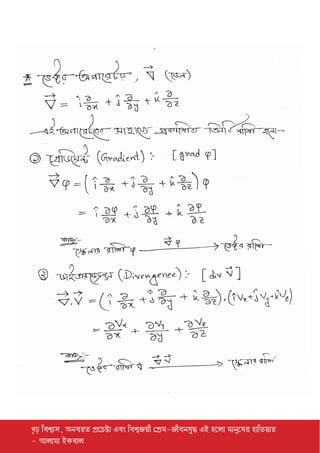 * ভেক্টর অপারেটর, ∇⃗ (ডেল)
∇⃗ = î ∂/∂x + ĵ ∂/∂y + k̂ ∂/∂z
এই অপারেটরের সাহায্যে প্রকাশিত তিনটি রাশি হলো-
① গ্রেডিয়েন্ট (Gradient) :- [grad φ]
∇⃗φ = (î ∂/∂x + ĵ ∂/∂y + k̂ ∂/∂z) φ
= î ∂φ/∂x + ĵ ∂φ/∂y + k̂ ∂φ/∂z
কাজ:- স্কেলার রাশি φ ∇⃗φ → ভেক্টর রাশি
② ডাইভারজেন্স (Divergence) :- [div V⃗]
∇⃗.V⃗ = (î ∂/∂x + ĵ ∂/∂y + k̂ ∂/∂z).(îVx+ĵVy+k̂Vz)
= ∂Vx/∂x + ∂Vy/∂y + ∂Vz/∂z
কাজ:- ভেক্টর রাশি V⃗ ∇⃗.V⃗ → স্কেলার রাশি
দৃঢ় বিশ্বাস, অনবরত প্রচেষ্টা এবং বিশ্বজয়ী প্রেম-জীবনযুদ্ধ এই হলো মানুষের হাতিয়ার
- আল্লামা ইকবাল